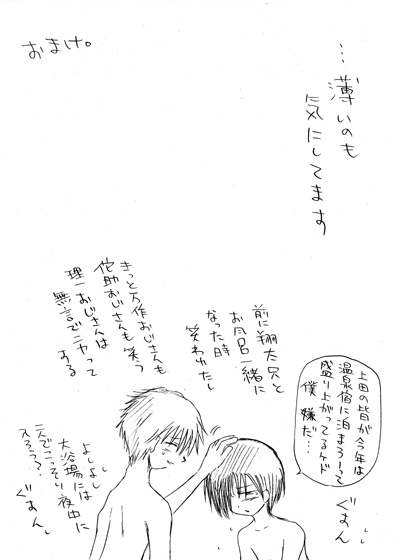 …薄いのも
気にしてます
おまけ。
上田の皆が今年は
温泉宿に泊まろーって
盛り上がってるケド
僕嫌だ…
ぐすん
前に翔太兄と
お風呂一緒に
なった時
笑われたし
きっと万作おじさんも
侘助おじさんも笑う
理一おじさんは
無言でニヤって
する
よしよし
大浴場には
二人でこっそり夜中に
入ろう?
ぐすん